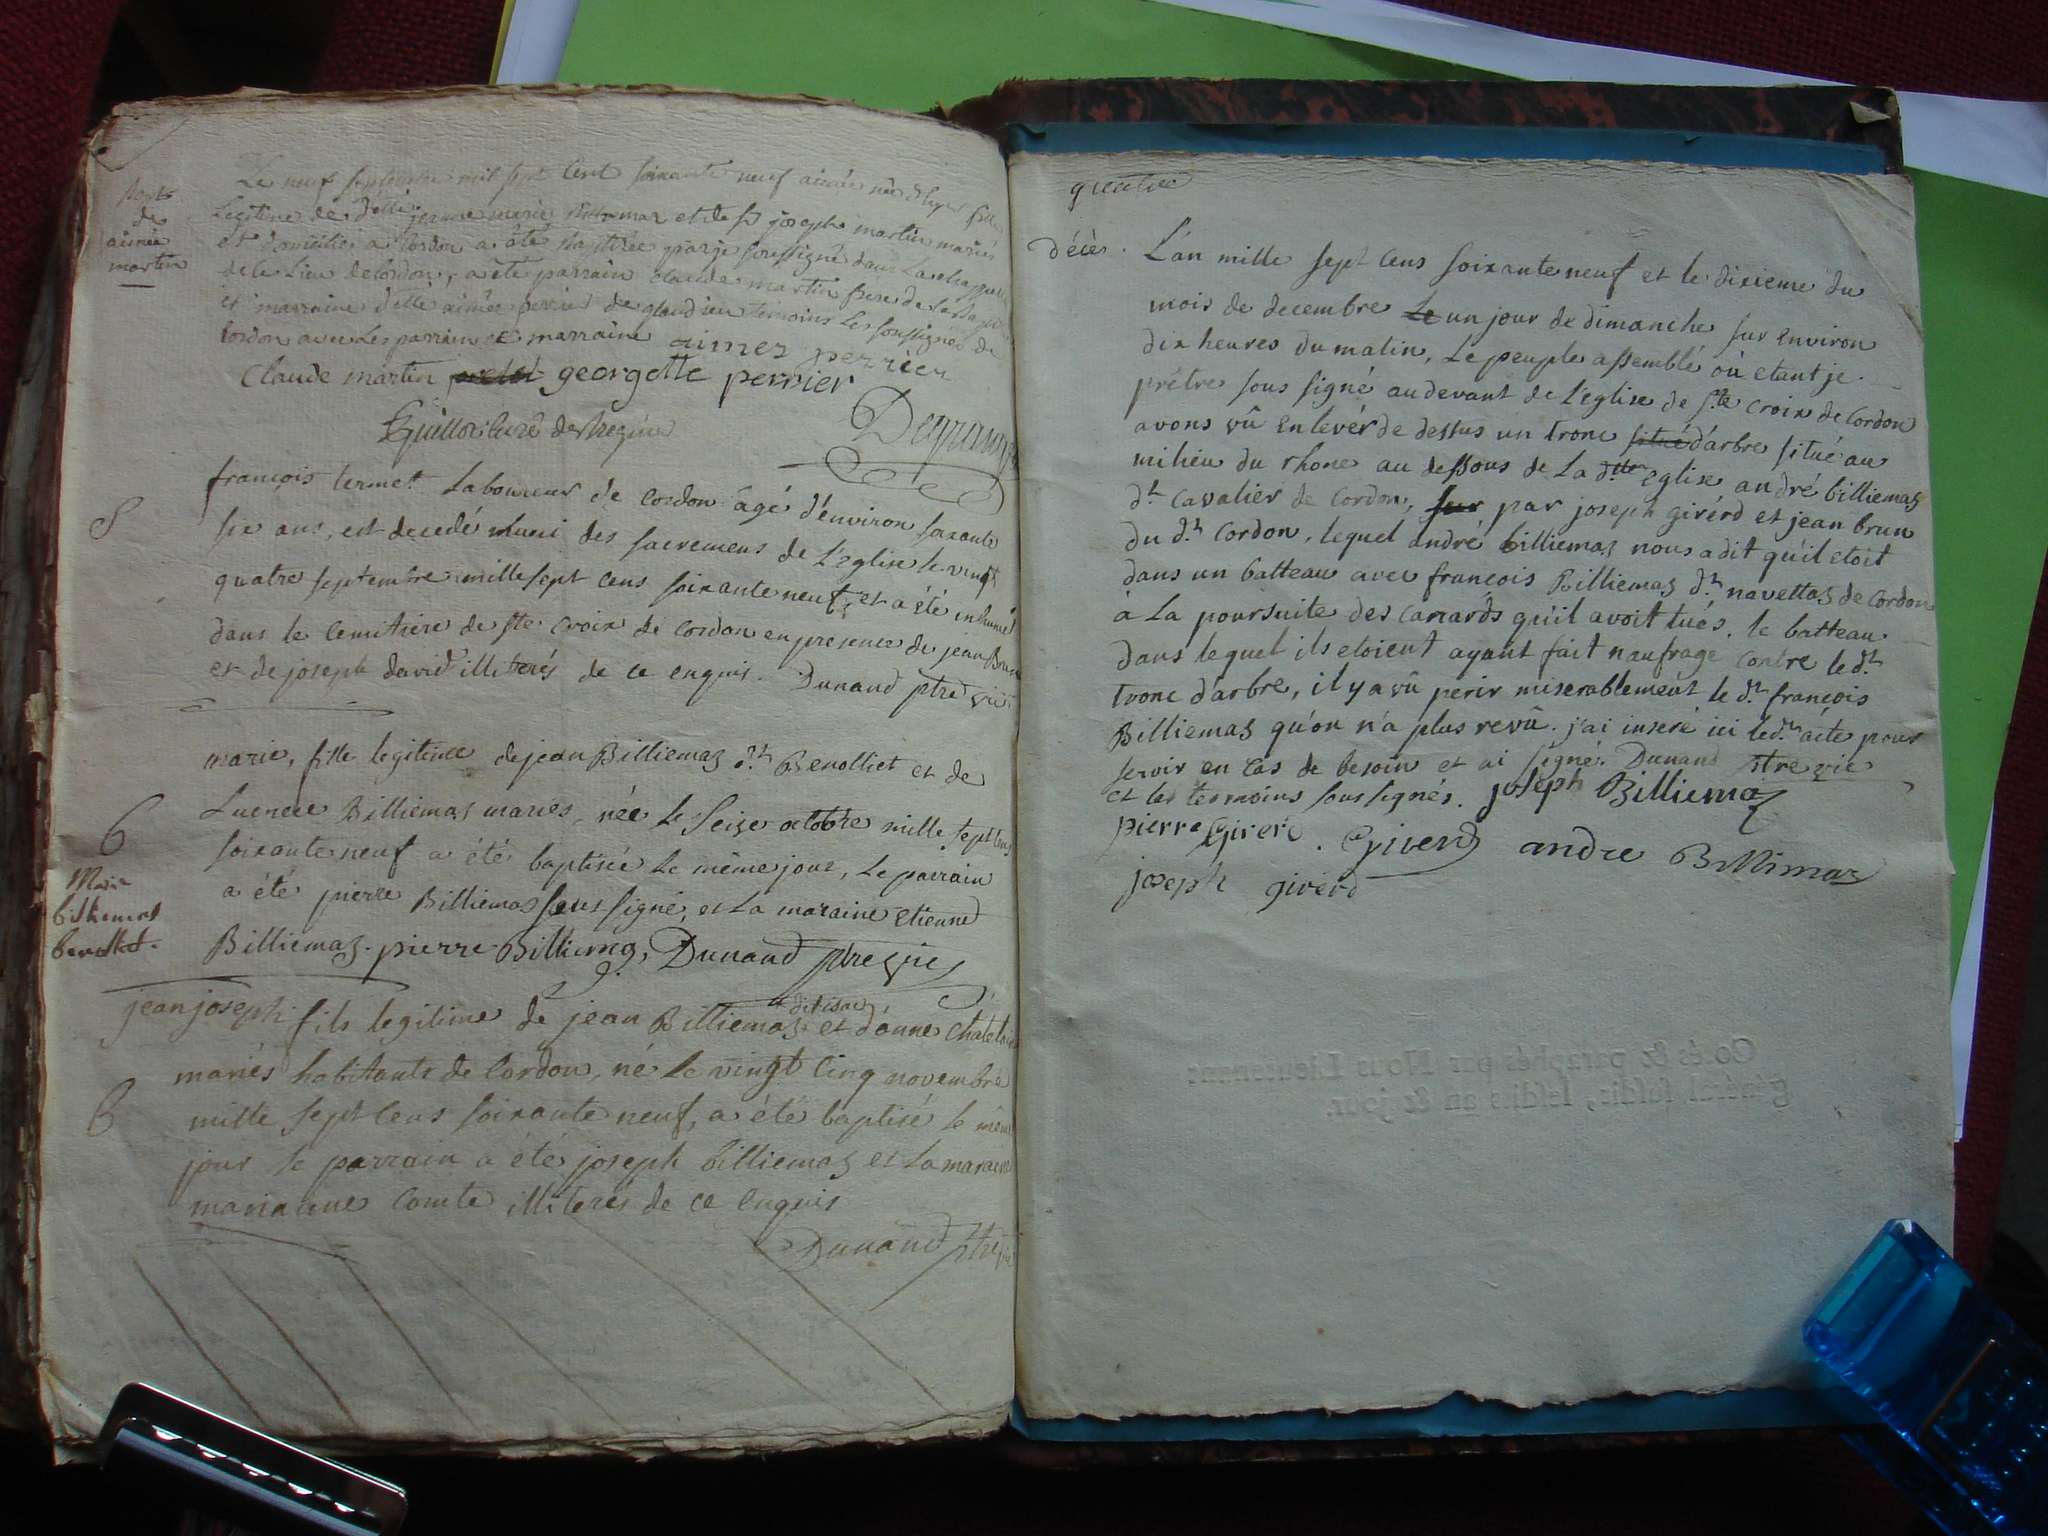 Bapt.
de
aimée
martin
Le neuf septembre mil sept cent soixante neuf aimée née d'hyer fille
Legitime de delle jeanne marie et de sr joseph martin mariés
et domiciliés a Cordon a été baptisée par je soussigné dans la chappelle
de ce Lieu de Cordon, a été parrain Claude martin frere de la
et marraine delle aimée perrier de glandieu temoins les soussignés de
Cordon avec les parrain et marraine aimez perrier
Claude martin georgette perrier
Guillot curé de bregnie
Degrange
S
françois termet Laboureur de Cordon agé d'environ soixante
six ans, est decedé muni des sacremens de L'eglise le vingt
quatre septembre mille sept cens soixante neuf, et a été inhumé
dans le Cemitiere de ste croix de cordon en presence de jean Brun
et de joseph david illiterés de ce enquis. Dunand ptre vic
marie, fille legitime de jean Billiemaz dt Benolliet et de
Lucrece Billiemaz mariés, née le Seize octobre mille sept cens
6
soixante neuf a été baptisée Le même jour, Le parrain
Marie
billiemas
benolliet.
a été pierre Billiemas sous signé, et La maraine etienne
Billiemaz. pierre Billiemas, Dunand ptre vic
jean joseph fils legitime de jean Billiemaz dit isac et d'anne Chatelain
mariés habitants de Cordon, né Le vingt Cinq novembre
B
mille sept cens soixante neuf, a été baptisé le même
jour le parrain a été joseph billiemaz et La maraine
marianne Comte illiterés de ce enquis
Dunand ptre vic
quatre
Décès. L'an mille sept cens soixante neuf et le dixieme du
mois de decembre Le un jour de dimanche sur environ
dix heures du matin, Le peuple assemblé où etant je
prêtre sous signé au devant de L'eglise de ste croix de Cordon
avons vû enlevér de dessus un tronc situé d'arbre situé au
milieu du rhone au dessous de La dtte eglise andré billiemaz
dt Cavalier de Cordon, sur par joseph girérd et jean brun
du dt Cordon, lequel andré billiemaz nous a dit qu'il etoit
dans un batteau avec françois Billiemaz dt navettaz de Cordon
à La poursuite des Canards qu'il avoit tués. le batteau
dans lequel ils etoient ayant fait naufrage contre le dt
tronc d'arbre, il y a vû perir miserablement le dt françois
Billiemaz qu'on n'a plus revû. j'ai inseré ici le dt acte pour
servir en Cas de besoin et ai signé. Dunand ptre vic
et les temoins sous signés. joseph Billiemaz
pierre Girerd. Girerd andre Billimaz
joseph girerd
Cotés & paraphés par Nous Lieutenant
général susdit, lesdits an & jour.